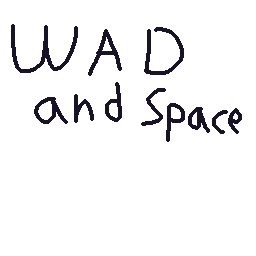 WAD
and Space